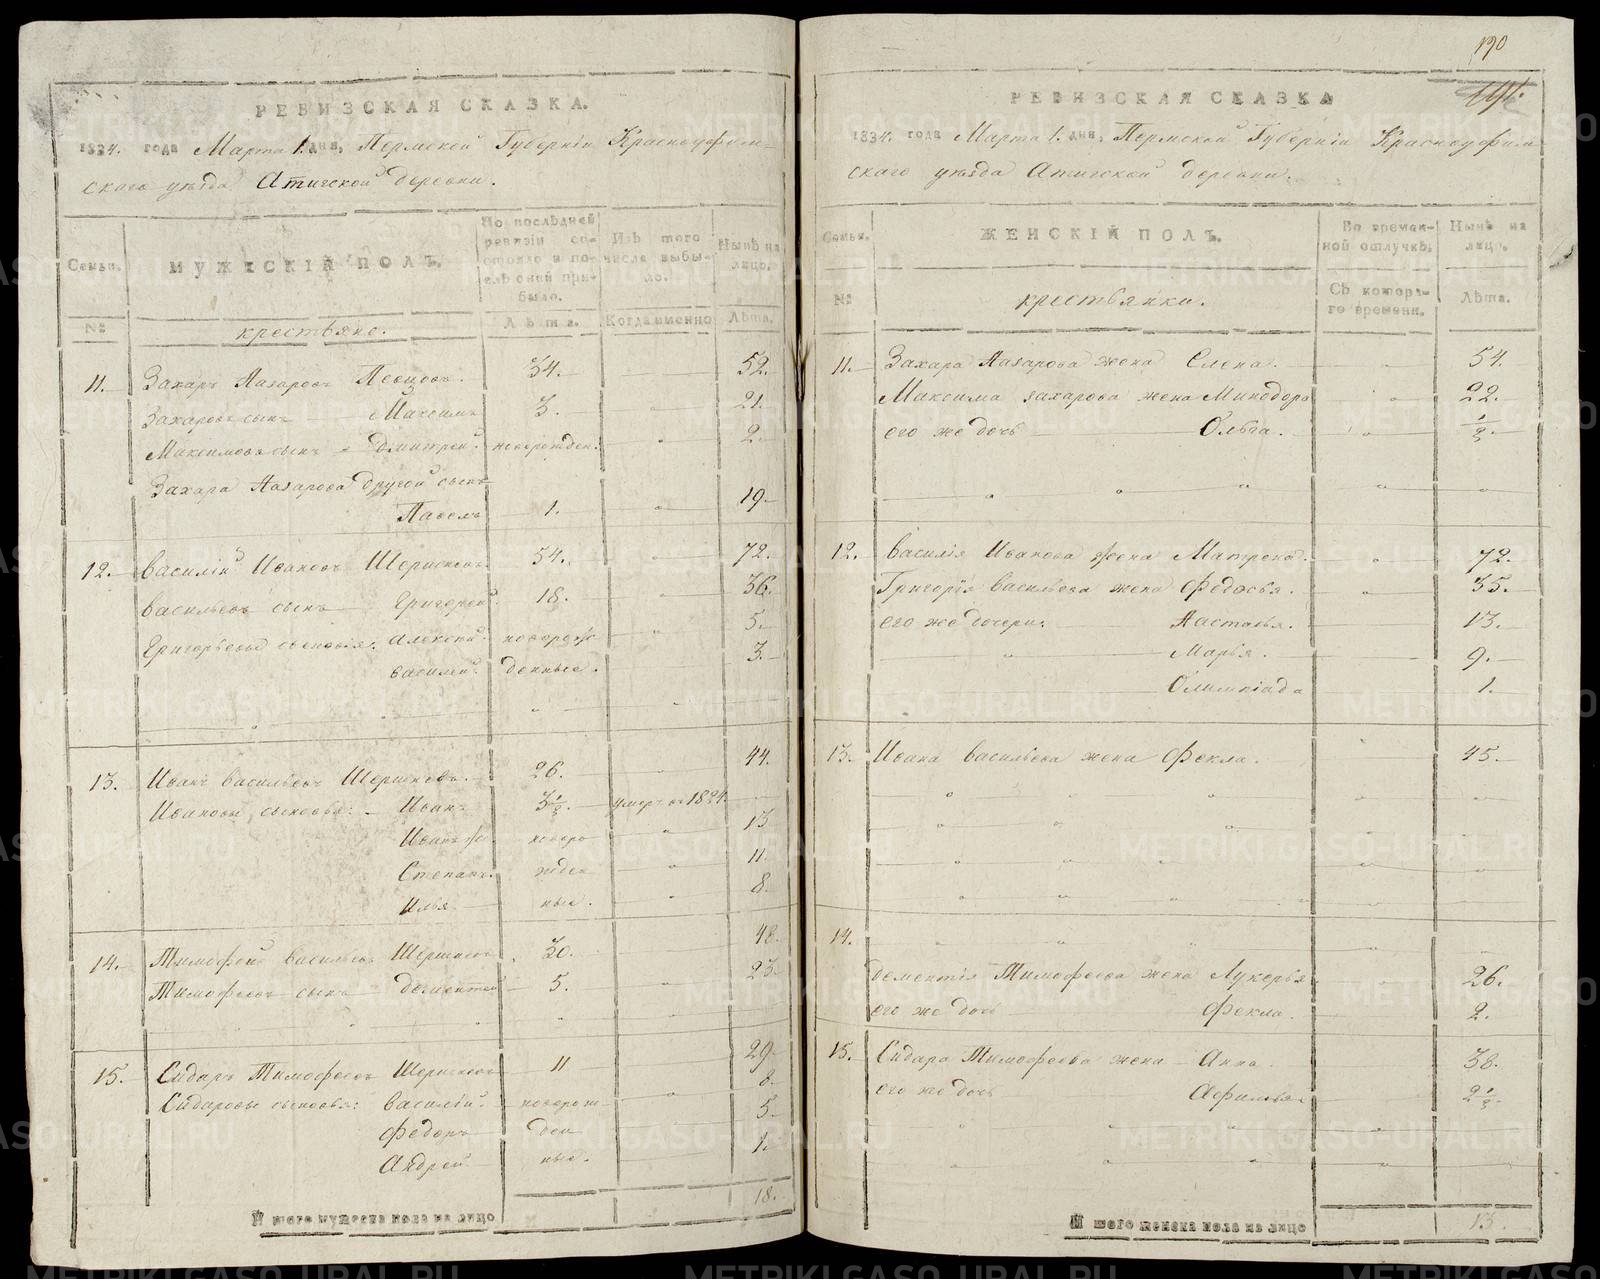 РЕВИЗСКАЯ СКАЗКА.
1834. года Марта 1. дня, Пермской Губернiи Красноуфим-
скаго уѣзда Атигской деревни.
Семьи.
МУЖЕСКIЙ ПОЛЪ.
По послѣдней ревизiи состояло и послѣ оной прибыло.
Изъ того числа выбыло.
Нынѣ на лицо.
№
крестьяне.
Лѣта.
Когда именно
Лѣта.
11. Захаръ Лазаровъ 34. 52.
Захаровъ сынъ Максимъ 3. 21.
Максимовъ сынъ Дмитрей новорожден. 2.
Захара Лазарова другой сынъ
Павелъ 1. 19
12. Василiй Ивановъ Шершневъ 54. 72.
Васильевъ сынъ Григорей 18. 36.
Григорьевы сыновья: Алексей новорож 5.
Василей денные. 3.
13. Иванъ Васильевъ Шершневъ. 26. 44.
Ивановы сыновья: Иванъ 3 1/2. умеръ въ 1824
Иванъ же новоро 13
Степанъ. жден 11.
Илья ные. 8.
14. Тимофей Васильевъ Шершневъ 30. 48.
Тимофеевъ сынъ Дементей 5. 23.
15. Сидаръ Тимофеевъ Шершневъ 11 29.
Сидаровы сыновья: Василiй новорож 8.
Федоръ ден 5.
Андрей ные. 1.
Итого мужеска пола на лицо 18.
190
РЕВИЗСКАЯ СКАЗКА
1834. года Марта 1. дня, Пермской Губернiи Красноуфим
скаго уѣзда Атигской деревни.
Семьи.
ЖЕНСКIЙ ПОЛЪ.
Во временной отлучкѣ.
Нынѣ на лицо.
№
крестьянки.
Съ котораго времени.
Лѣта.
11. Захара Лазарова жена Елена. 54.
Максима Захарова жена Минодора 22.
его же дочь Ольга. 1/2.
12. Василiя Иванова жена Матрена. 72.
Григорiя Васильева жена Федосья. 35.
его же дочери: Настасья. 13.
Марья. 9.
Олимпiада 1.
13. Ивана Васильева жена Фекла. 45.
14.
Дементiя Тимофеева жена Лукерья 26.
его же дочь Фекла. 2.
15. Сидара Тимофеева жена Анна 38.
его же дочь 2 1/2.
Итого женска пола на лицо 13.
METRIKI.GASO-URAL.RU